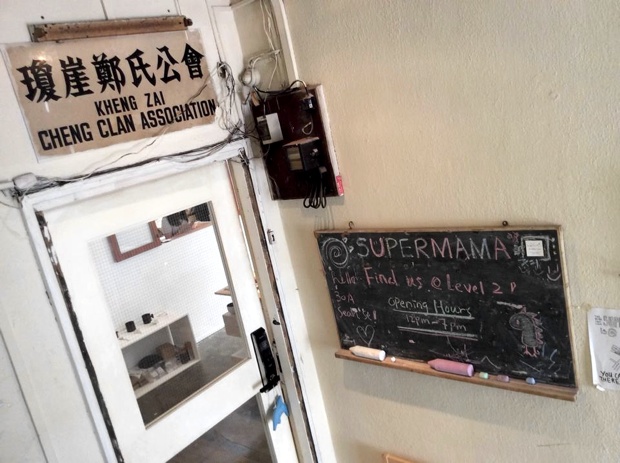 瓊崖鄭氏公會
KHENG ZAI
CHENG CLAN ASSOCIATION
SUPERMAMA
hello
Find us @ Level 2
Opening Hours
12pm - 7pm
YOU CA
THERE